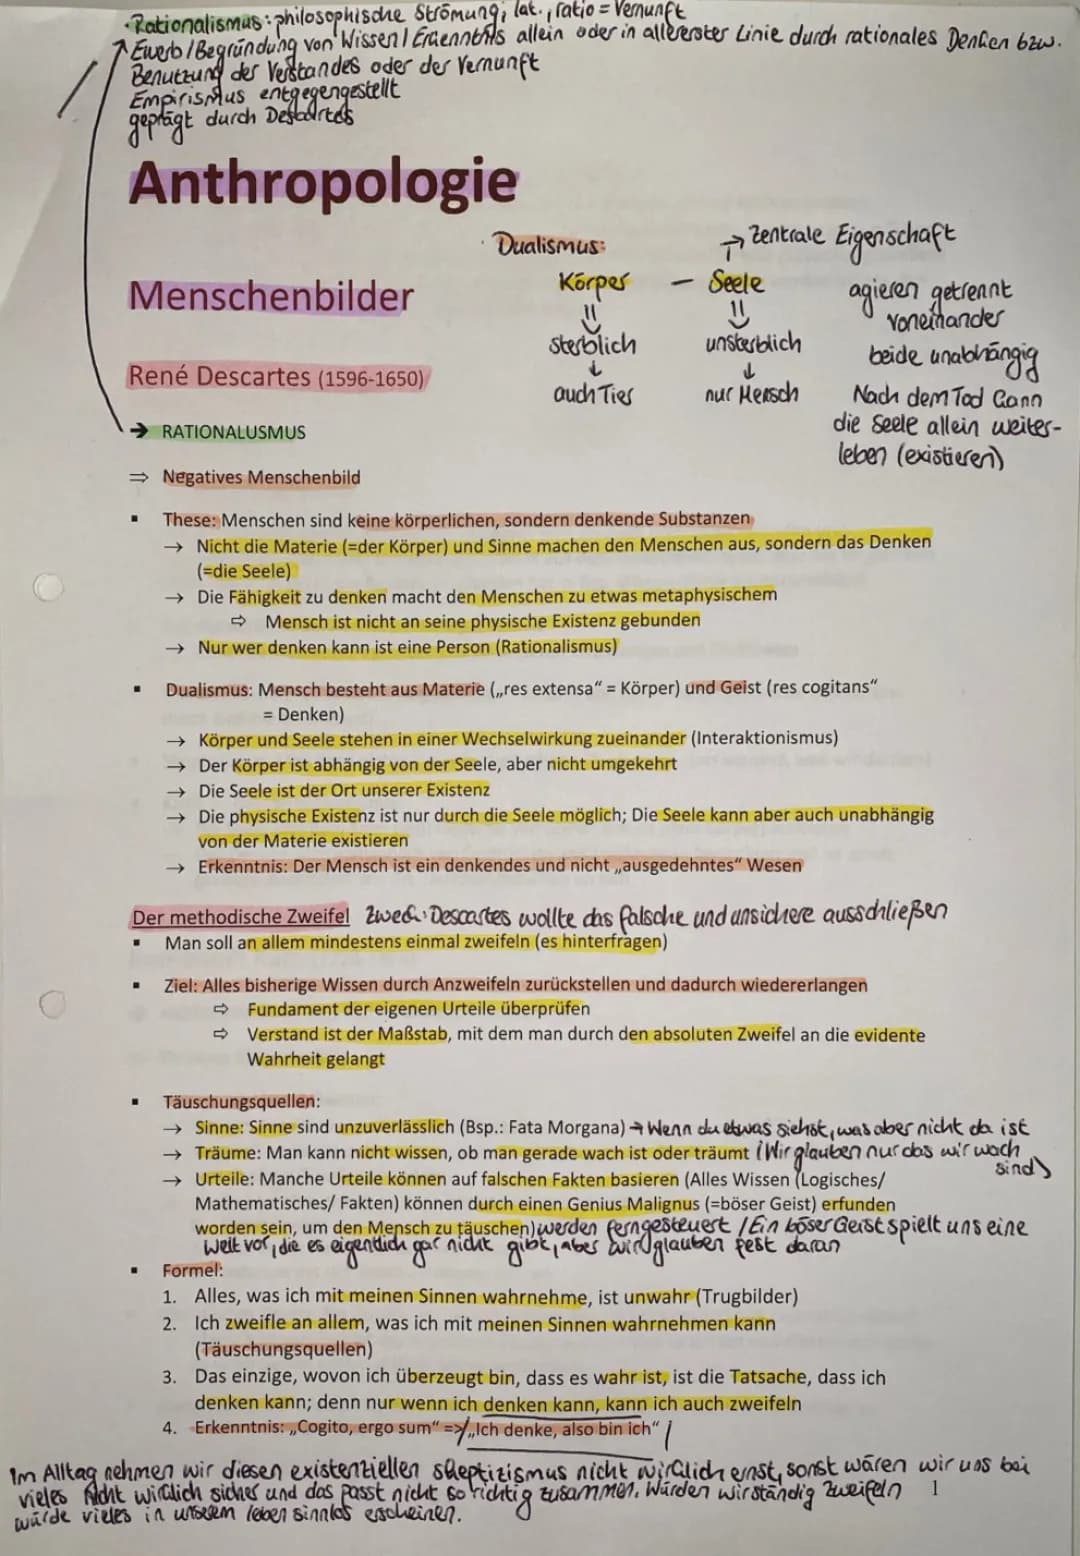 · Rationalismus: philosophische Strömung; lat., ratio = Vernunft
Ewerb / Begründung von Wissen / Erkenntnis allein oder in allererster Linie durch rationales Denken bzw.
Benutzung der Verstandes oder der Vernunft
Empirismus entgegengestellt
geprägt durch Descartes
Anthropologie
· Dualismus:
→ Zentrale Eigenschaft
Körper — Seele
agieren getrennt
voneinander
Menschenbilder
sterblich
unsterblich
beide unabhängig
René Descartes (1596-1650)
auch Tier
nur Mensch
Nach dem Tod kann
die Seele allein weiter-
leben (existieren)
→ RATIONALUSMUS
⇒ Negatives Menschenbild
▪ These: Menschen sind keine körperlichen, sondern denkende Substanzen
→ Nicht die Materie (=der Körper) und Sinne machen den Menschen aus, sondern das Denken
(=die Seele)
→ Die Fähigkeit zu denken macht den Menschen zu etwas metaphysischem
⇨ Mensch ist nicht an seine physische Existenz gebunden
→ Nur wer denken kann ist eine Person (Rationalismus)
▪ Dualismus: Mensch besteht aus Materie („res extensa“ = Körper) und Geist (res cogitans“
= Denken)
→ Körper und Seele stehen in einer Wechselwirkung zueinander (Interaktionismus)
→ Der Körper ist abhängig von der Seele, aber nicht umgekehrt
→ Die Seele ist der Ort unserer Existenz
→ Die physische Existenz ist nur durch die Seele möglich; Die Seele kann aber auch unabhängig
von der Materie existieren
→ Erkenntnis: Der Mensch ist ein denkendes und nicht „ausgedehntes“ Wesen
Der methodische Zweifel Zweck: Descartes wollte das falsche und unsichere ausschließen
▪ Man soll an allem mindestens einmal zweifeln (es hinterfragen)
▪ Ziel: Alles bisherige Wissen durch Anzweifeln zurückstellen und dadurch wiedererlangen
⇨ Fundament der eigenen Urteile überprüfen
⇨ Verstand ist der Maßstab, mit dem man durch den absoluten Zweifel an die evidente
Wahrheit gelangt
▪ Täuschungsquellen:
→ Sinne: Sinne sind unzuverlässlich (Bsp.: Fata Morgana) → Wenn du etwas siehst, was aber nicht da ist
→ Träume: Man kann nicht wissen, ob man gerade wach ist oder träumt (Wir glauben nur das wir wach
sind)
→ Urteile: Manche Urteile können auf falschen Fakten basieren (Alles Wissen (Logisches/
Mathematisches/ Fakten) können durch einen Genius Malignus (=böser Geist) erfunden
worden sein, um den Mensch zu täuschen) werden ferngesteuert / Ein böser Geist spielt uns eine
Welt vor, die es eigentlich gar nicht gibt, aber wir glauben fest daran
▪ Formel:
1. Alles, was ich mit meinen Sinnen wahrnehme, ist unwahr (Trugbilder)
2. Ich zweifle an allem, was ich mit meinen Sinnen wahrnehmen kann
(Täuschungsquellen)
3. Das einzige, wovon ich überzeugt bin, dass es wahr ist, ist die Tatsache, dass ich
denken kann; denn nur wenn ich denken kann, kann ich auch zweifeln
4. Erkenntnis: „Cogito, ergo sum“ => „Ich denke, also bin ich“
Im Alltag nehmen wir diesen existenziellen skeptizismus nicht wirklich ernst, sonst wären wir uns bei
vieles nicht wirklich sicher und das passt nicht so richtig zusammen. Würden wir ständig zweifeln
würde vieles in unserem leben sinnlos erscheinen.
1